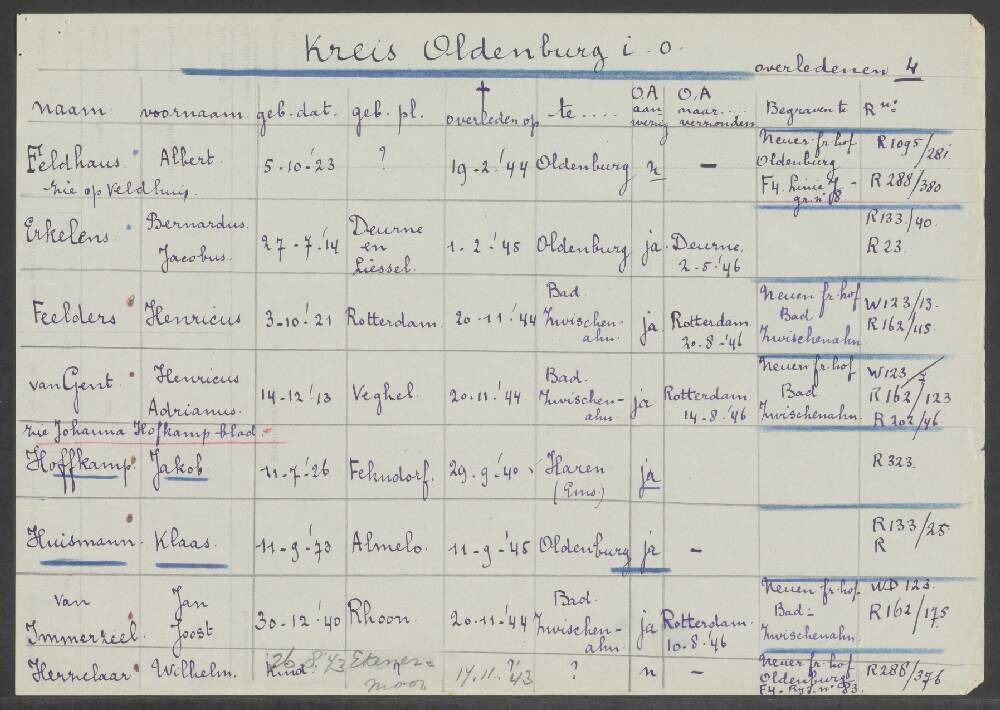 Kreis Oldenburg i.o.
overledenen 4
naam. voornaam. geb. dat. geb. pl. † overleden op te .... O,A aanwezig O,A naar.... verzonden Begraven te Rno:
Feldhaus. Albert. 5-10-'23 ? 19-2-'44 Oldenburg n — Neuer fr. hof Oldenburg R1095/281.
zie op Veldhuis. F4. Linie 7 - gr. no 18 R288/380
Erkelens. Bernardus Jacobus. 27-7-'14 Deurne en Liessel. 1-2-'45 Oldenburg ja. Deurne. 2-5-'46 R133/40. R23.
Feelders Henricus 3-10-'21 Rotterdam. 20-11-'44 Bad Zwischenahn. ja Rotterdam. 20-8-'46 Neuen fr. hof Bad Zwischenahn W123/13. R162/115
van Gent. Henricus Adrianus. 14-12-'13 Veghel. 20-11-'44 Bad. Zwischenahn ja Rotterdam. 14-8-'46 Neuen fr. hof Bad Zwischenahn. W123/ R162/123 R202/46.
zie Johanna Hofkamp-blad.
Hoffkamp. Jakob 11-7-'26 Fehndorf. 29-9-'40 Haren (Ems) ja R323.
Huismann. Klaas. 11-9-'73 Almelo. 11-9-'45 Oldenburg ja — R133/25 R
van Immerzeel. Jan Joost 30-12-'40 Rhoon. 20-11-'44 Bad. Zwischenahn. ja Rotterdam. 10-8-'46 Neuen fr. hof. Bad- Zwischenahn. WD 123. R162/175
Herzelaar Wilhelm. Kind. 26.8.'43 17.11.'43 ? ? n — Neuer fr hof Oldenburg R288/376